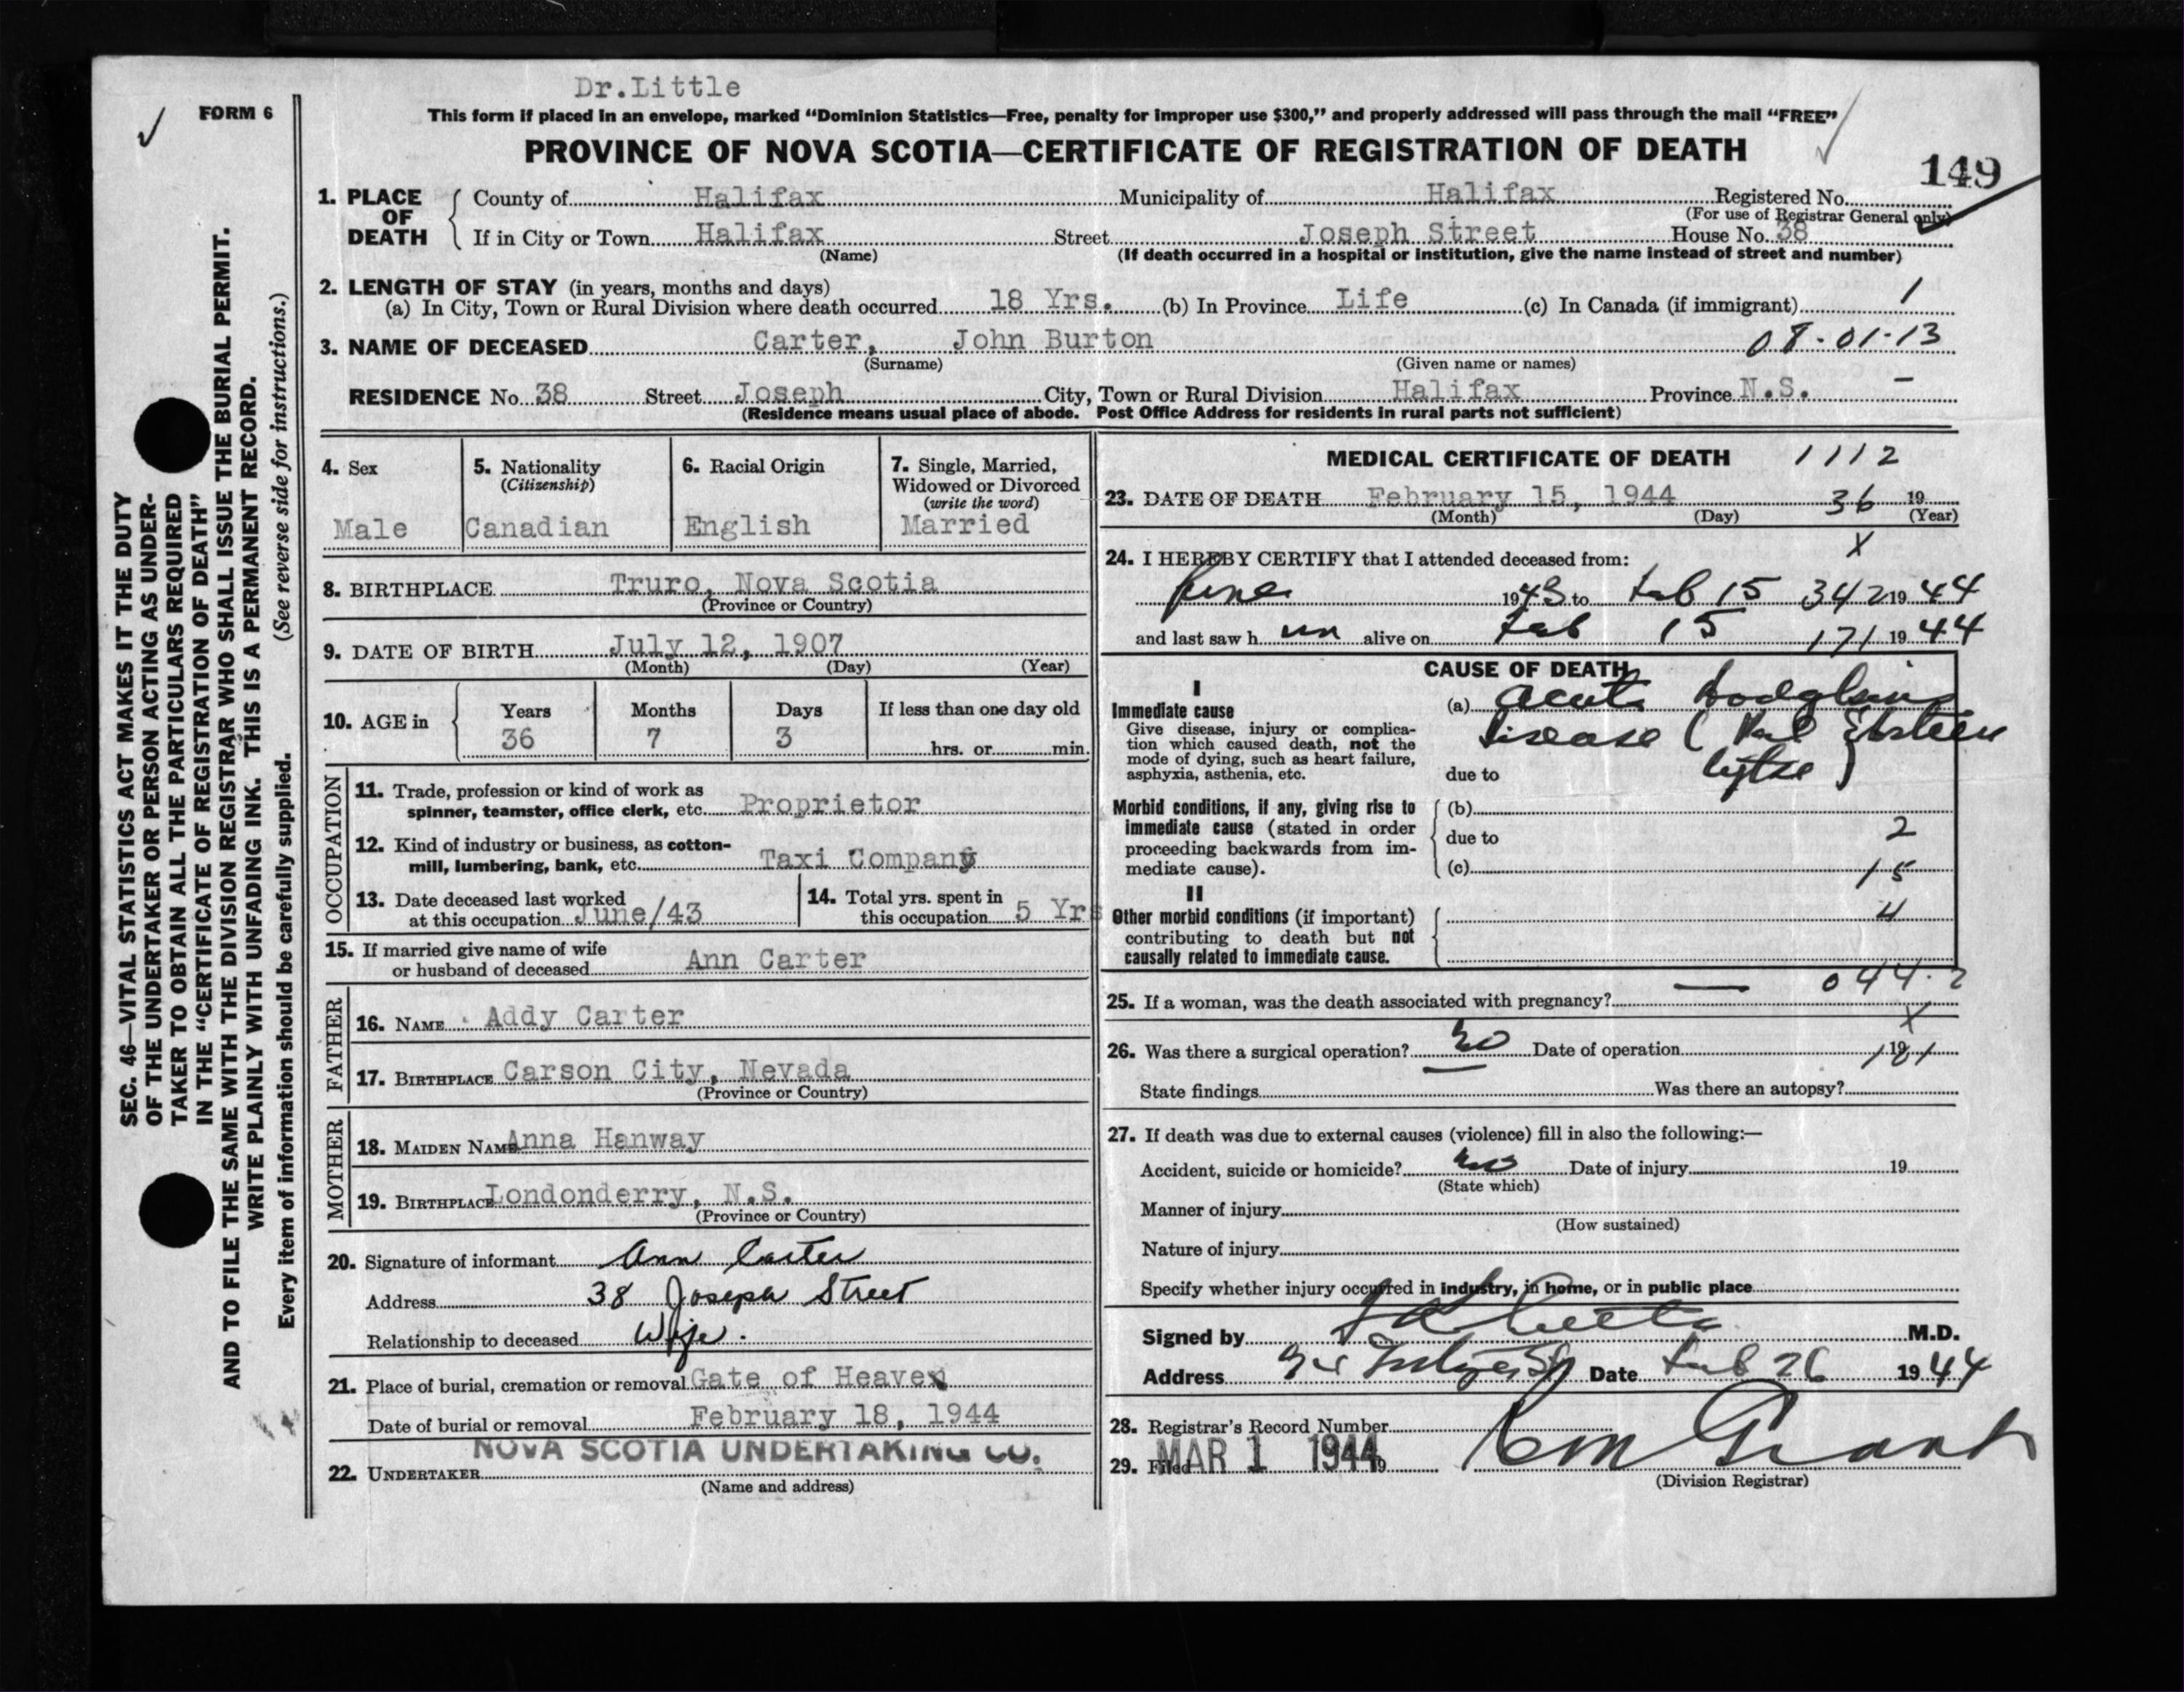 Dr.Little
FORM 6
This form if placed in an envelope, marked “Dominion Statistics—Free, penalty for improper use $300,” and properly addressed will pass through the mail “FREE”
PROVINCE OF NOVA SCOTIA—CERTIFICATE OF REGISTRATION OF DEATH
149
1. PLACE OF DEATH
County of Halifax Municipality of Halifax Registered No.
(For use of Registrar General only)
If in City or Town Halifax Street Joseph Street House No. 38
(Name) (If death occurred in a hospital or Institution, give the name instead of street and number)
2. LENGTH OF STAY (in years, months and days)
(a) In City, Town or Rural Division where death occurred 18 Yrs. (b) In Province Life (c) In Canada (if immigrant) 1
3. NAME OF DECEASED Carter, John Burton 08-01-13
(Surname) (Given name or names)
RESIDENCE No. 38 Street Joseph City, Town or Rural Division Halifax Province N.S. –
(Residence means usual place of abode. Post Office Address for residents in rural parts not sufficient)
SEC. 46—VITAL STATISTICS ACT MAKES IT THE DUTY
OF THE UNDERTAKER OR PERSON ACTING AS UNDER-
TAKER TO OBTAIN ALL THE PARTICULARS REQUIRED
IN THE “CERTIFICATE OF REGISTRATION OF DEATH”
AND TO FILE THE SAME WITH THE DIVISION REGISTRAR WHO SHALL ISSUE THE BURIAL PERMIT.
WRITE PLAINLY WITH UNFADING INK. THIS IS A PERMANENT RECORD.
Every item of information should be carefully supplied. (See reverse side for instructions.)
4. Sex
Male
5. Nationality
(Citizenship)
Canadian
6. Racial Origin
English
7. Single, Married,
Widowed or Divorced
(write the word)
Married
8. BIRTHPLACE Truro, Nova Scotia
(Province or Country)
9. DATE OF BIRTH July 12, 1907
(Month) (Day) (Year)
10. AGE in
Years Months Days If less than one day old
36 7 3 hrs. or min.
OCCUPATION
11. Trade, profession or kind of work as
spinner, teamster, office clerk, etc. Proprietor
12. Kind of industry or business, as cotton-
mill, lumbering, bank, etc. Taxi Company
13. Date deceased last worked
at this occupation June/43
14. Total yrs. spent in
this occupation 5 Yrs
15. If married give name of wife
or husband of deceased Ann Carter
FATHER
16. NAME Addy Carter
17. BIRTHPLACE Carson City, Nevada
(Province or Country)
MOTHER
18. MAIDEN NAME Anna Hanway
19. BIRTHPLACE Londonderry, N.S.
(Province or Country)
20. Signature of informant Ann Carter
Address 38 Joseph Street
Relationship to deceased Wife.
21. Place of burial, cremation or removal Gate of Heaven
Date of burial or removal February 18, 1944
NOVA SCOTIA UNDERTAKING CO.
22. UNDERTAKER
(Name and address)
MEDICAL CERTIFICATE OF DEATH 1112
23. DATE OF DEATH February 15, 1944 36 19
(Month) (Day) (Year)
X
24. I HEREBY CERTIFY that I attended deceased from:
June 1943 to Feb 15 342 1944
and last saw h im alive on Feb 15 171 1944
CAUSE OF DEATH
I
Immediate cause
Give disease, injury or complica-
tion which caused death, not the
mode of dying, such as heart failure,
asphyxia, asthenia, etc.
(a) Acute Hodgkins
Disease ( Pel Ebstein
due to type )
Morbid conditions, if any, giving rise to
immediate cause (stated in order
proceeding backwards from im-
mediate cause).
(b)
due to 2
(c) 15
II
Other morbid conditions (if important)
contributing to death but not
causally related to immediate cause.
4
25. If a woman, was the death associated with pregnancy? — 044.2
X
26. Was there a surgical operation? no Date of operation 19 181
State findings Was there an autopsy?
27. If death was due to external causes (violence) fill in also the following:—
Accident, suicide or homicide? no Date of injury 19
(State which)
Manner of injury
(How sustained)
Nature of injury
Specify whether injury occurred in industry, in home, or in public place
Signed by M.D.
Address Date Feb 26 1944
28. Registrar's Record Number
29. Filed MAR 1 1944 19 Grant
(Division Registrar)